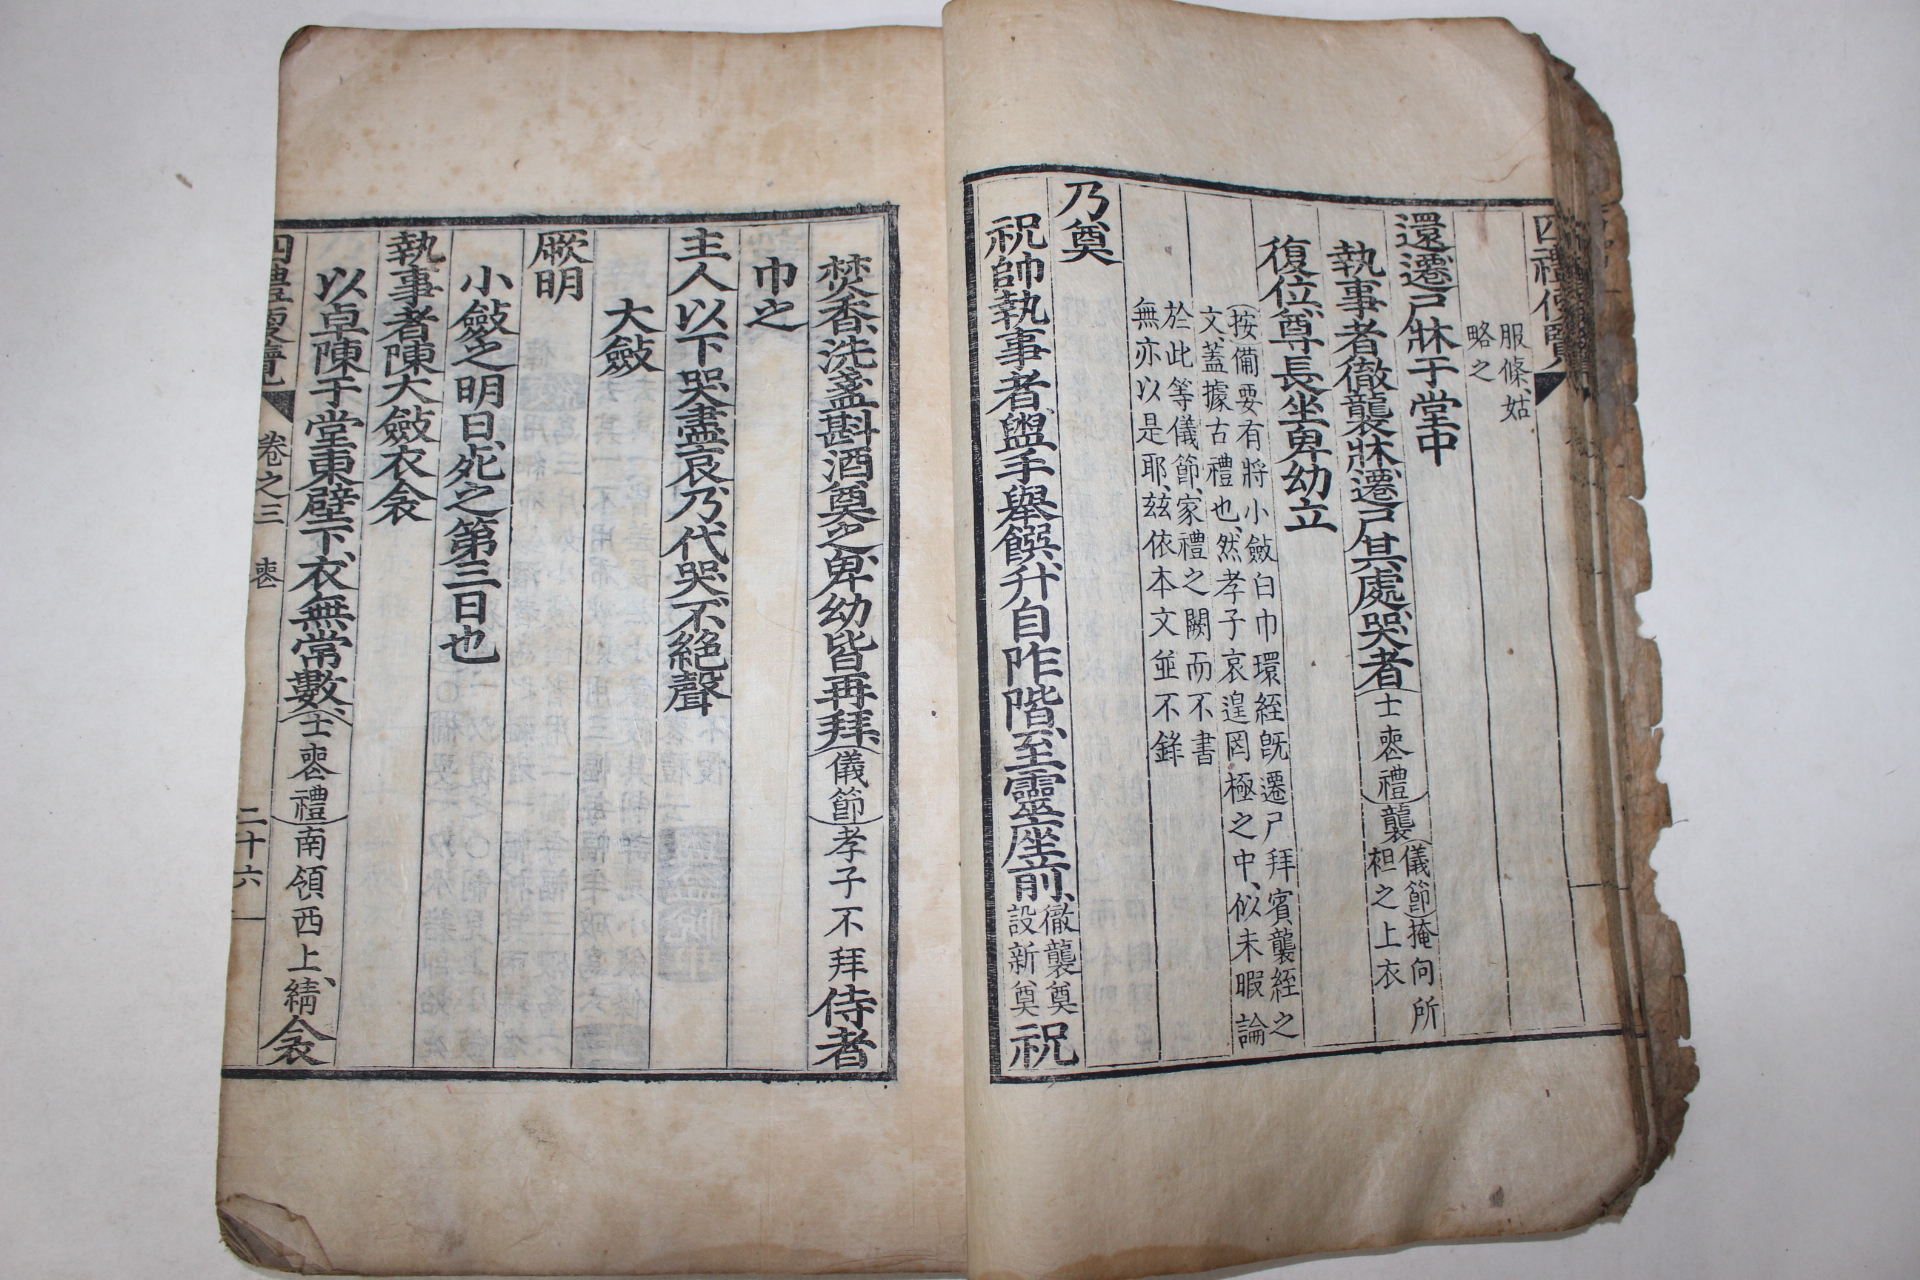 四禮便覽
服條姑
略之
還遷尸牀于堂中
執事者徹襲牀遷尸其處哭者(士喪禮)襲(儀節)掩向所
袒之上衣
復位尊長坐卑幼立
(按備要有將小斂白巾環絰旣遷尸拜賓襲絰之
文蓋據古禮也然孝子哀遑罔極之中似未暇論
於此等儀節家禮之闕而不書
無亦以是耶玆依本文並不錄
乃奠
祝帥執事者盥手舉饌升自阼階至靈座前徹襲奠
設新奠祝
焚香洗盞斟酒奠之卑幼皆再拜(儀節)孝子不拜侍者
巾之
主人以下哭盡哀乃代哭不絶聲
大斂
厥明
小斂之明日死之第三日也
執事者陳大斂衣衾
以卓陳于堂東壁下衣無常數(士喪禮)南領西上綪衾
四禮便覽 卷之三 喪 二十六